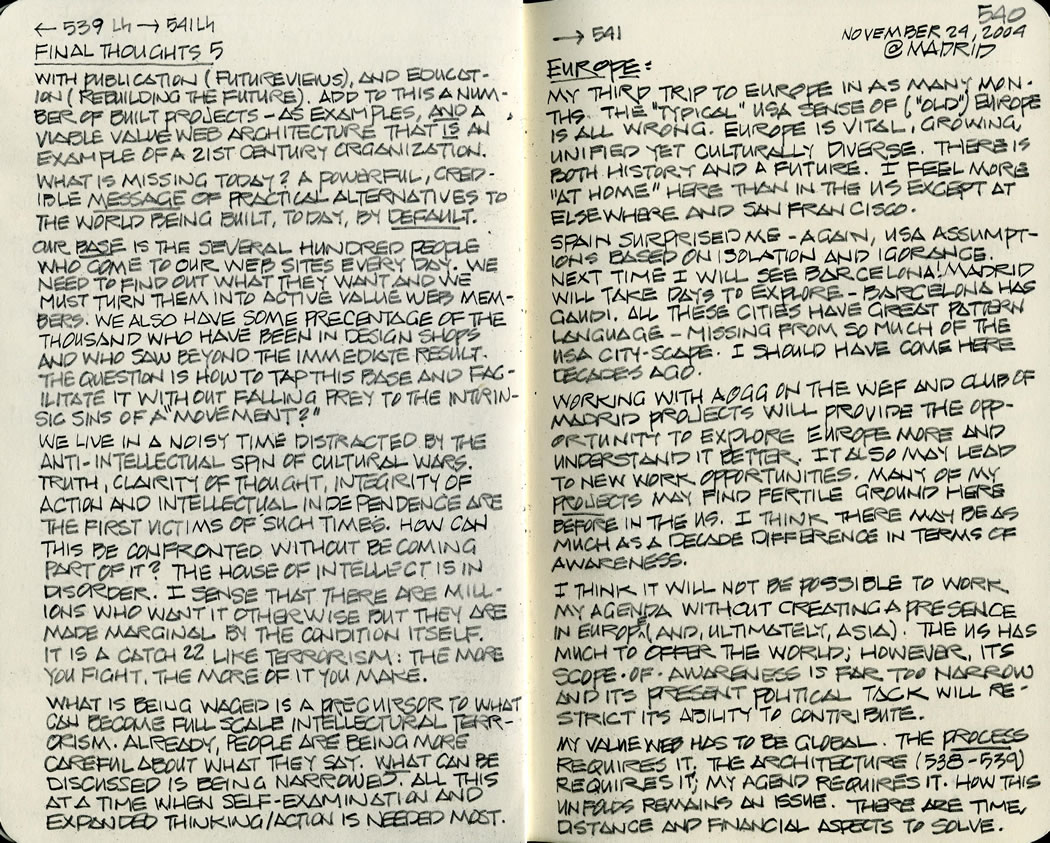 ← 539 Lh → 541Lh
FINAL THOUGHTS 5
WITH PUBLICATION (FUTUREVIEWS), AND EDUCAT-
ION (REBUILDING THE FUTURE). ADD TO THIS A NUM-
BER OF BUILT PROJECTS - AS EXAMPLES, AND A
VIABLE VALUE WEB ARCHITECTURE THAT IS AN
EXAMPLE OF A 21ST CENTURY ORGANIZATION.
WHAT IS MISSING TODAY? A POWERFUL, CRED-
IBLE MESSAGE OF PRACTICAL ALTERNATIVES TO
THE WORLD BEING BUILT, TODAY, BY DEFAULT.
OUR BASE IS THE SEVERAL HUNDRED PEOPLE
WHO COME TO OUR WEB SITES EVERY DAY. WE
NEED TO FIND OUT WHAT THEY WANT AND WE
MUST TURN THEM INTO ACTIVE VALUE WEB MEM-
BERS. WE ALSO HAVE SOME PRECENTAGE OF THE
THOUSAND WHO HAVE BEEN IN DESIGN SHOPS
AND WHO SAW BEYOND THE IMMEDIATE RESULT.
THE QUESTION IS HOW TO TAP THIS BASE AND FAC-
ILITATE IT WITHOUT FALLING PREY TO THE INTRIN-
SIC SINS OF A "MOVEMENT?"
WE LIVE IN A NOISY TIME DISTRACTED BY THE
ANTI-INTELLECTUAL SPIN OF CULTURAL WARS.
TRUTH, CLAIRITY OF THOUGHT, INTEGIRITY OF
ACTION AND INTELLECTUAL INDEPENDENCE ARE
THE FIRST VICTIMS OF SUCH TIMES. HOW CAN
THIS BE CONFRONTED WITHOUT BECOMING
PART OF IT? THE HOUSE OF INTELLECT IS IN
DISORDER. I SENSE THAT THERE ARE MILL-
IONS WHO WANT IT OTHERWISE BUT THEY ARE
MADE MARGINAL BY THE CONDITION ITSELF.
IT IS A CATCH 22 LIKE TERRORISM: THE MORE
YOU FIGHT, THE MORE OF IT YOU MAKE.
WHAT IS BEING WAGED IS A PRECURSOR TO WHAT
CAN BECOME FULL SCALE INTELLECTURAL TERR-
ORISM. ALREADY, PEOPLE ARE BEING MORE
CAREFUL ABOUT WHAT THEY SAY. WHAT CAN BE
DISCUSSED IS BEING NARROWED. ALL THIS
AT A TIME WHEN SELF-EXAMINATION AND
EXPANDED THINKING/ACTION IS NEEDED MOST.
540
→ 541
NOVEMBER 24, 2004
@MADRID
EUROPE:
MY THIRD TRIP TO EUROPE IN AS MANY MON-
THS. THE "TYPICAL" USA SENSE OF ("OLD") EUROPE
IS ALL WRONG. EUROPE IS VITAL, GROWING,
UNIFIED YET CULTURALLY DIVERSE. THERE IS
BOTH HISTORY AND A FUTURE. I FEEL MORE
"AT HOME" HERE THAN IN THE US EXCEPT AT
ELSEWHERE AND SAN FRANCISCO.
SPAIN SURPRISED ME - AGAIN, USA ASSUMPT-
IONS BASED ON ISOLATION AND IGORANCE.
NEXT TIME I WILL SEE BARCELONA! MADRID
WILL TAKE DAYS TO EXPLORE - BARCELONA HAS
GAUDI. ALL THESE CITIES HAVE GREAT PATTERN
LANGUAGE - MISSING FROM SO MUCH OF THE
USA CITY-SCAPE. I SHOULD HAVE COME HERE
DECADES AGO.
WORKING WITH AOGG ON THE WEF AND CLUB OF
MADRID PROJECTS WILL PROVIDE THE OPP-
ORTUNITY TO EXPLORE EUROPE MORE AND
UNDERSTAND IT BETTER. IT ALSO MAY LEAD
TO NEW WORK OPPORTUNITIES. MANY OF MY
PROJECTS MAY FIND FERTILE GROUND HERE
BEFORE IN THE US. I THINK THERE MAY BE AS
MUCH AS A DECADE DIFFERENCE IN TERMS OF
AWARENESS.
I THINK IT WILL NOT BE POSSIBLE TO WORK
MY AGENDA WITHOUT CREATING A PRESENCE
IN EUROPE (AND, ULTIMATELY, ASIA). THE US HAS
MUCH TO OFFER THE WORLD; HOWEVER, ITS
SCOPE-OF-AWARENESS IS FAR TOO NARROW
AND ITS PRESENT POLITICAL TACK WILL RE-
STRICT ITS ABILITY TO CONTRIBUTE.
MY VALUE WEB HAS TO BE GLOBAL. THE PROCESS
REQUIRES IT, THE ARCHITECTURE (538-539)
REQUIRES IT; MY AGEND REQUIRES IT. HOW THIS
UNFOLDS REMAINS AN ISSUE. THERE ARE TIME,
DISTANCE AND FINANCIAL ASPECTS TO SOLVE.